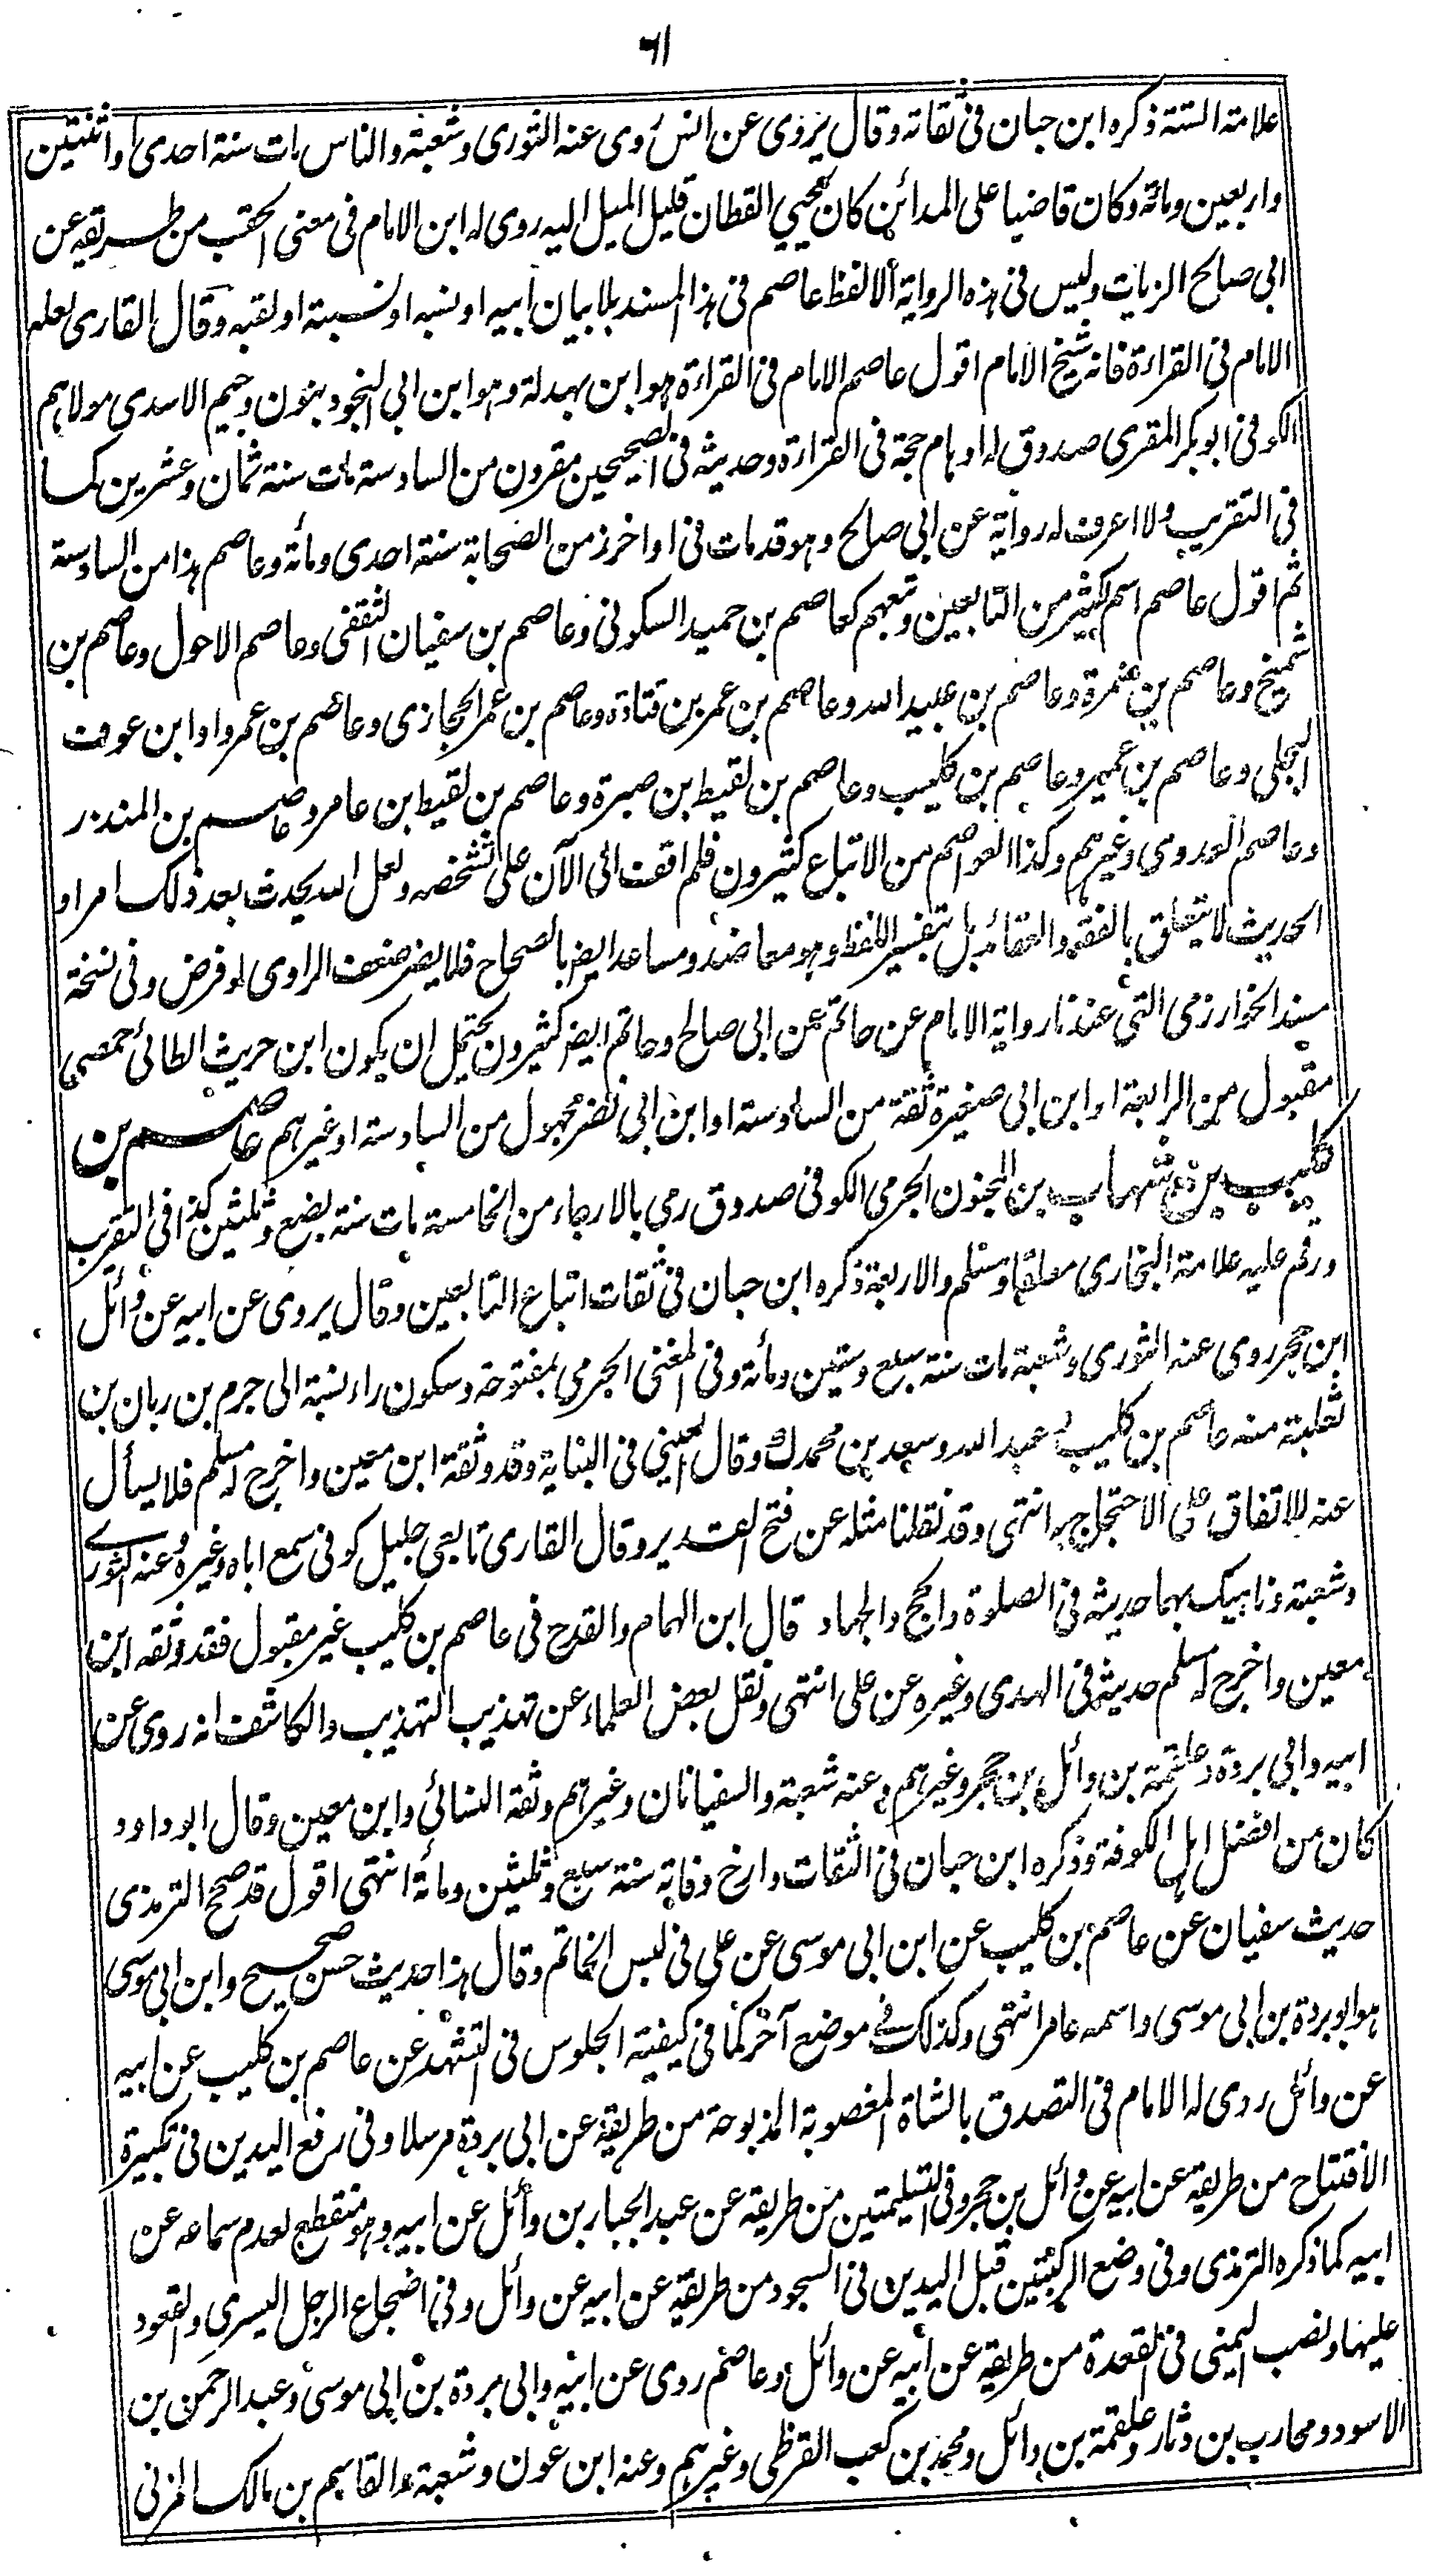 ٦١
علامة الستة ذكره ابن حبان فى ثقاته وقال يروى عن انس روى عنه الثورى وشعبة والناس مات سنة احدى او اثنتين
واربعين ومائة وكان قاضيا على المدائن كان يحيي القطان قليل الميل اليه روى له ابن الامام فى معنى الحقب من طريقه عن
ابى صالح الزيات وليس فى هذه الرواية الا لفظ عاصم فى هذا المسند بلا بيان ابيه او نسبه او نسبته او لقبه وقال القارى لعله
الامام فى القراءة فانه شيخ الامام اقول عاصم الامام فى القراءة هو ابن بهدلة وهو ابن ابى النجود بنون وجيم الاسدى مولاهم
الكوفى ابو بكر المقرى صدوق له اوهام حجة فى القراءة وحديثه فى الصحيحين مقرون من السادسة مات سنة ثمان وعشرين كما
فى التقريب ولا اعرف له رواية عن ابى صالح وهو قد مات فى اواخر زمن الصحابة سنة احدى ومائة وعاصم هذا من السادسة
ثم اقول عاصم اسم كثير من التابعين وتبعهم كعاصم بن حميد السكونى وعاصم بن سفيان الثقفى وعاصم الاحول وعاصم بن
شميخ وعاصم بن ضمرة وعاصم بن عبيد الله وعاصم بن عمر بن قتادة وعاصم بن عمر الحجازى وعاصم بن عمرو او ابن عوف
البجلى وعاصم بن عمير وعاصم بن كليب وعاصم بن لقيط ابن صبرة وعاصم بن لقيط ابن عامر وعاصم بن المنذر
وعاصم العدوى وغيرهم وكذا العواصم من الاتباع كثيرون فلم اقف الى الآن على تشخصه ولعل الله يحدث بعد ذلك امرا و
الحديث لا يتعلق بالفقه والعقائد بل بتفسير اللفظ وهو معاضد ومساعد ايضا بالصحاح فلا يضر ضعف الراوى لو فرض وفى نسخة
مسند الخوارزمى التى عندنا رواية الامام عن حاتم عن ابى صالح وحاتم ايضا كثيرون يحتمل ان يكون ابن حريث الطائى حمصى
مقبول من الرابعة او ابن ابى صغيرة ثقة من السادسة او ابن ابى نضر مجهول من السادسة او غيرهم عاصم بن
كليب بن شهاب بن المجنون الجرمى الكوفى صدوق رمى بالارجاء من الخامسة مات سنة بضع وثلثين كذا فى التقريب
ورقم عليه علامة البخارى معلقا ومسلم والاربعة ذكره ابن حبان فى ثقات اتباع التابعين وقال يروى عن ابيه عن وائل
ابن حجر روى عنه الثورى وشعبة مات سنة سبع وستين ومائة وفى المغنى الجرمى بمفتوحة وسكون راء نسبة الى جرم بن ربان بن
ثعلبة منه عاصم بن كليب وعبد الله وسعيد بن محمد وقال العينى فى البناية وقد وثقة ابن معين واخرج له مسلم فلا يسأل
عنه للاتفاق على الاحتجاج به انتهى وقد نقلنا مثله عن فتح القدير وقال القارى تابعى جليل كوفى سمع اباه وغيره وعنه الثورے
وشعبة وناهيك بهما حديثه فى الصلوة والحج والجهاد قال ابن الهمام والقدح فى عاصم بن كليب غير مقبول فقد وثقه ابن
معين واخرج له مسلم حديثه فى الهدى وغيره عن على انتهى ونقل بعض العلماء عن تهذيب التهذيب والكاشف انه روى عن
ابيه وابى بردة وعلقمة بن وائل بن حجر وغيرهم وعنه شعبة والسفيانان وغيرهم وثقه النسائى وابن معين وقال ابو داود
كان من افضل اهل الكوفة وذكره ابن حبان فى الثقات وارخ وفاته سنة سبع وثلثين ومائة انتهى اقول قد صحح الترمذى
حديث سفيان عن عاصم بن كليب عن ابن ابى موسى عن على فى لبس الخاتم وقال هذا حديث حسن صحيح وابن ابى موسى
هو ابو بردة بن ابى موسى واسمه عامر انتهى وكذلك فے موضع آخر كما فى كيفية الجلوس فى التشهد عن عاصم بن كليب عن ابيه
عن وائل روى له الامام فى التصدق بالشاة المغصوبة المذبوحة من طريقه عن ابى بردة مرسلا وفى رفع اليدين فى تكبيرة
الافتتاح من طريقه عن ابيه عن وائل بن حجر وفى التسليمتين من طريقه عن عبد الجبار بن وائل عن ابيه وهو منقطع لعدم سماعه عن
ابيه كما ذكره الترمذى وفى وضع الركبتين قبل اليدين فى السجود من طريقه عن ابيه عن وائل وفى اضجاع الرجل اليسرى والقعود
عليها ونصب اليمنى فى القعدة من طريقه عن ابيه عن وائل وعاصم روى عن ابيه وابى بردة بن ابى موسى وعبد الرحمن بن
الاسود ومحارب بن دثار وعلقمة بن وائل ومحمد بن كعب القرظى وغيرهم وعنه ابن عون وشعبة والقاسم بن مالك المزنى